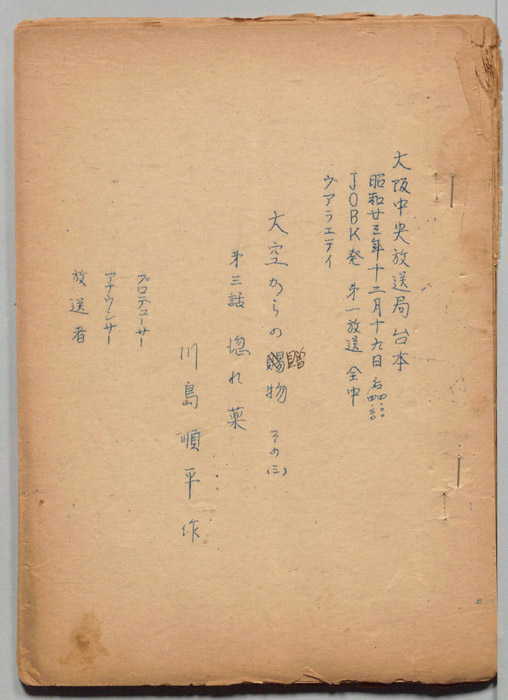 大阪中央放送局台本
昭和廿三年十二月十九日 后
JOBK発 第一放送 全中
ヴアラエテイ
大空からの贈物 その(三)
第三話 惚れ薬
川島順平作
プロデューサー
アナウンサー
放送者